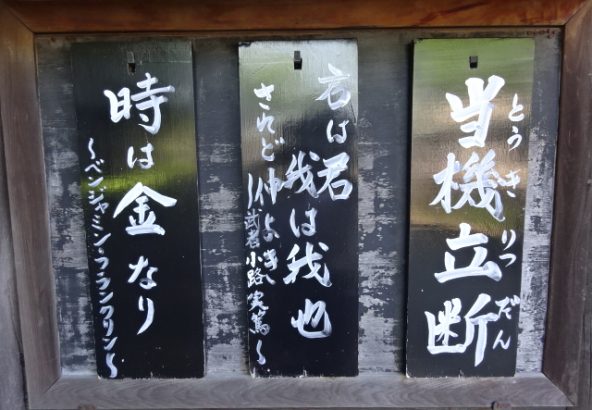 当機立断
とうきりつだん
君は君
我は我也
されど仲よき
〜武者小路実篤〜
時は金なり
〜ベンジャミン・フランクリン〜